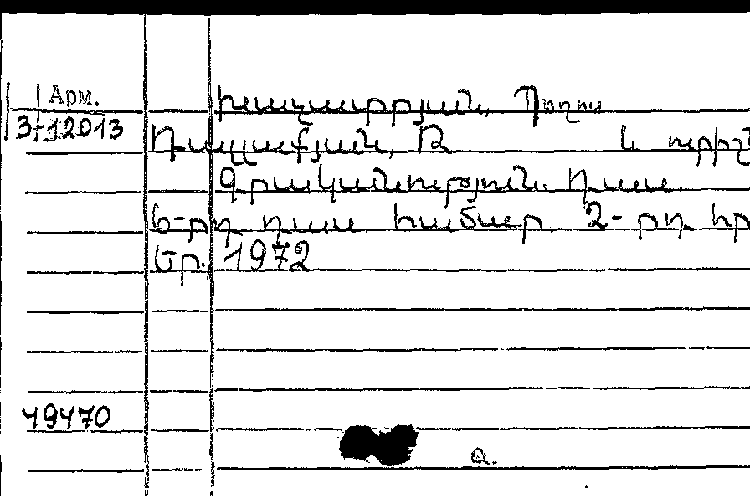 Арм.
Խաչատրյան, Պողոս
3-12013
Դալլաքյան, Ռ և ուրիշ
Գրականություն. Դաս
6-րդ դաս համար 2-րդ հր
Եր. 1972
49470
а.